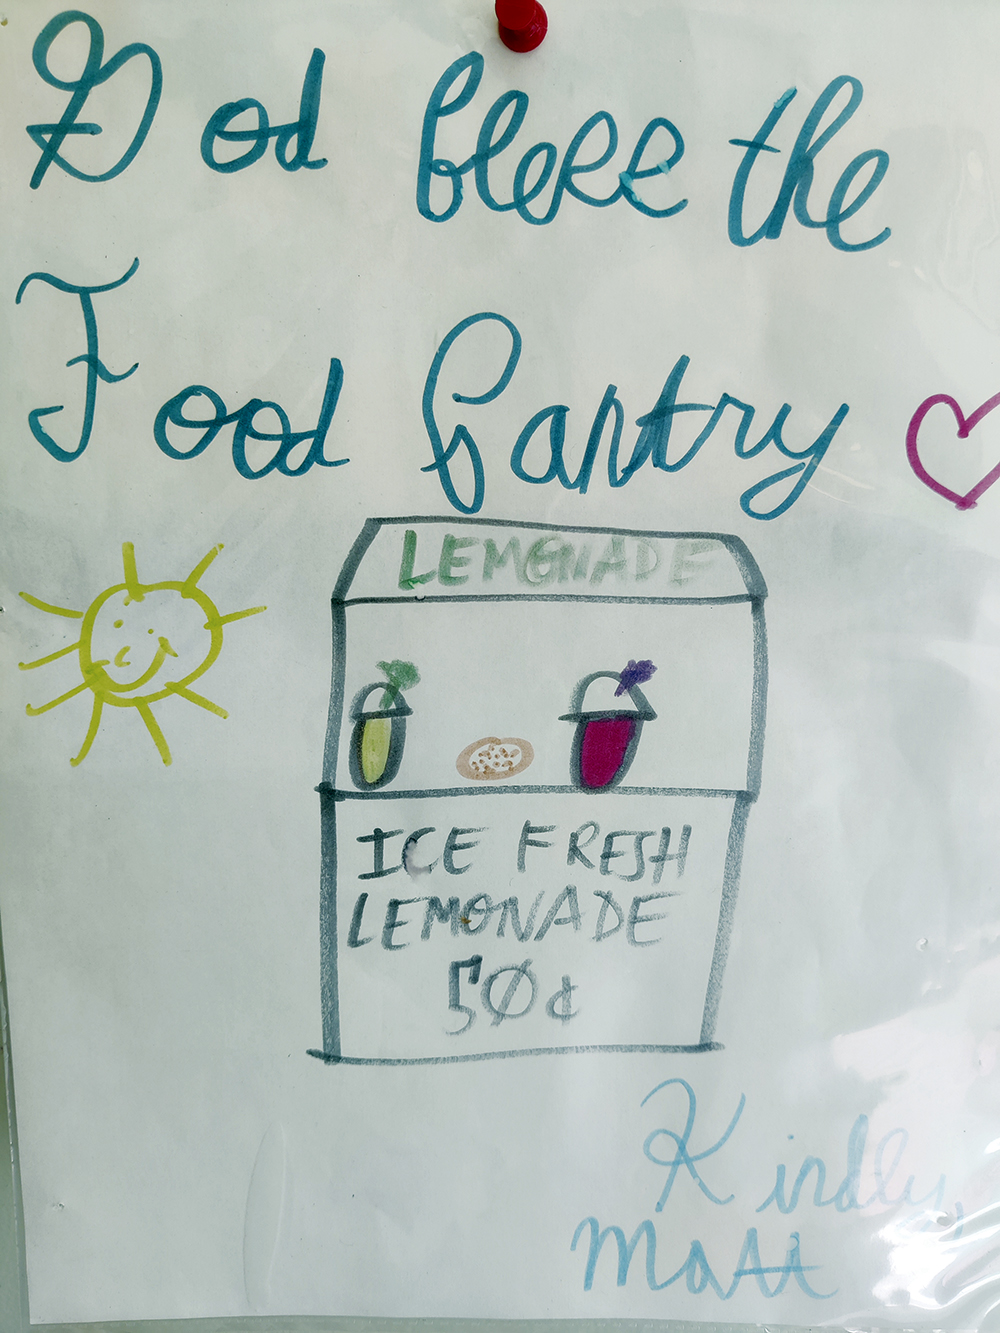 God bless the
Food Pantry
LEMONADE
ICE FRESH
LEMONADE
50¢
Kindly,
Matt